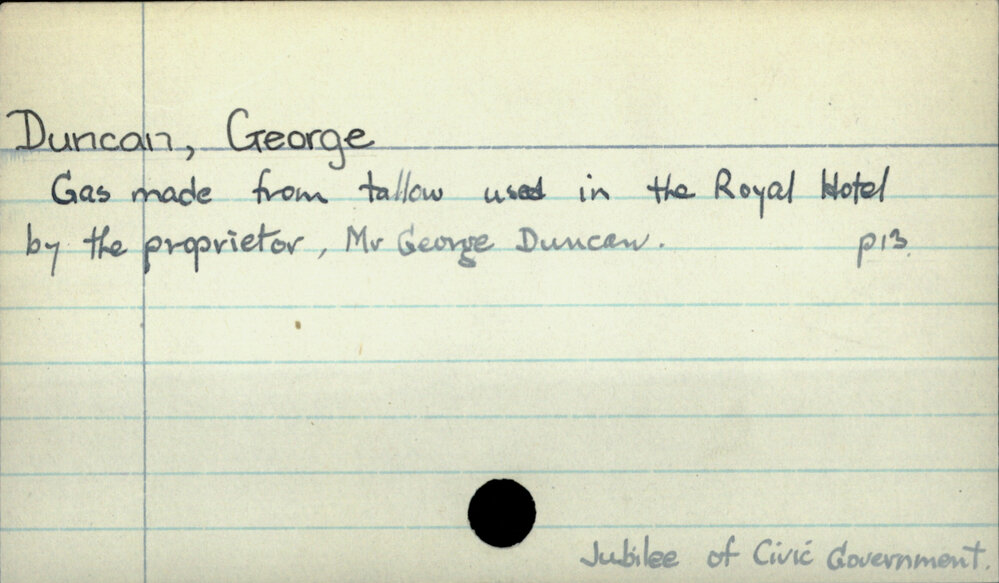 Duncan, George
Gas made from tallow used in the Royal Hotel
by the proprietor, Mr George Duncan. p13.
Jubilee of Civic Government.